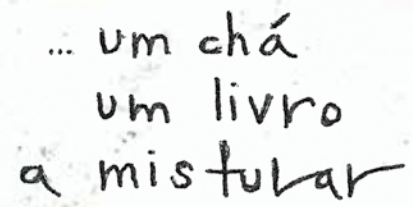 ... um chá
um livro
a misturar